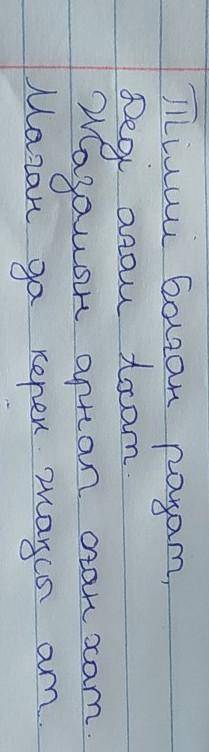 Тілші болған рахат,
Деді ағам Ахат.
Жазамын арнап оған хат.
Маған да керек жақсы ат.